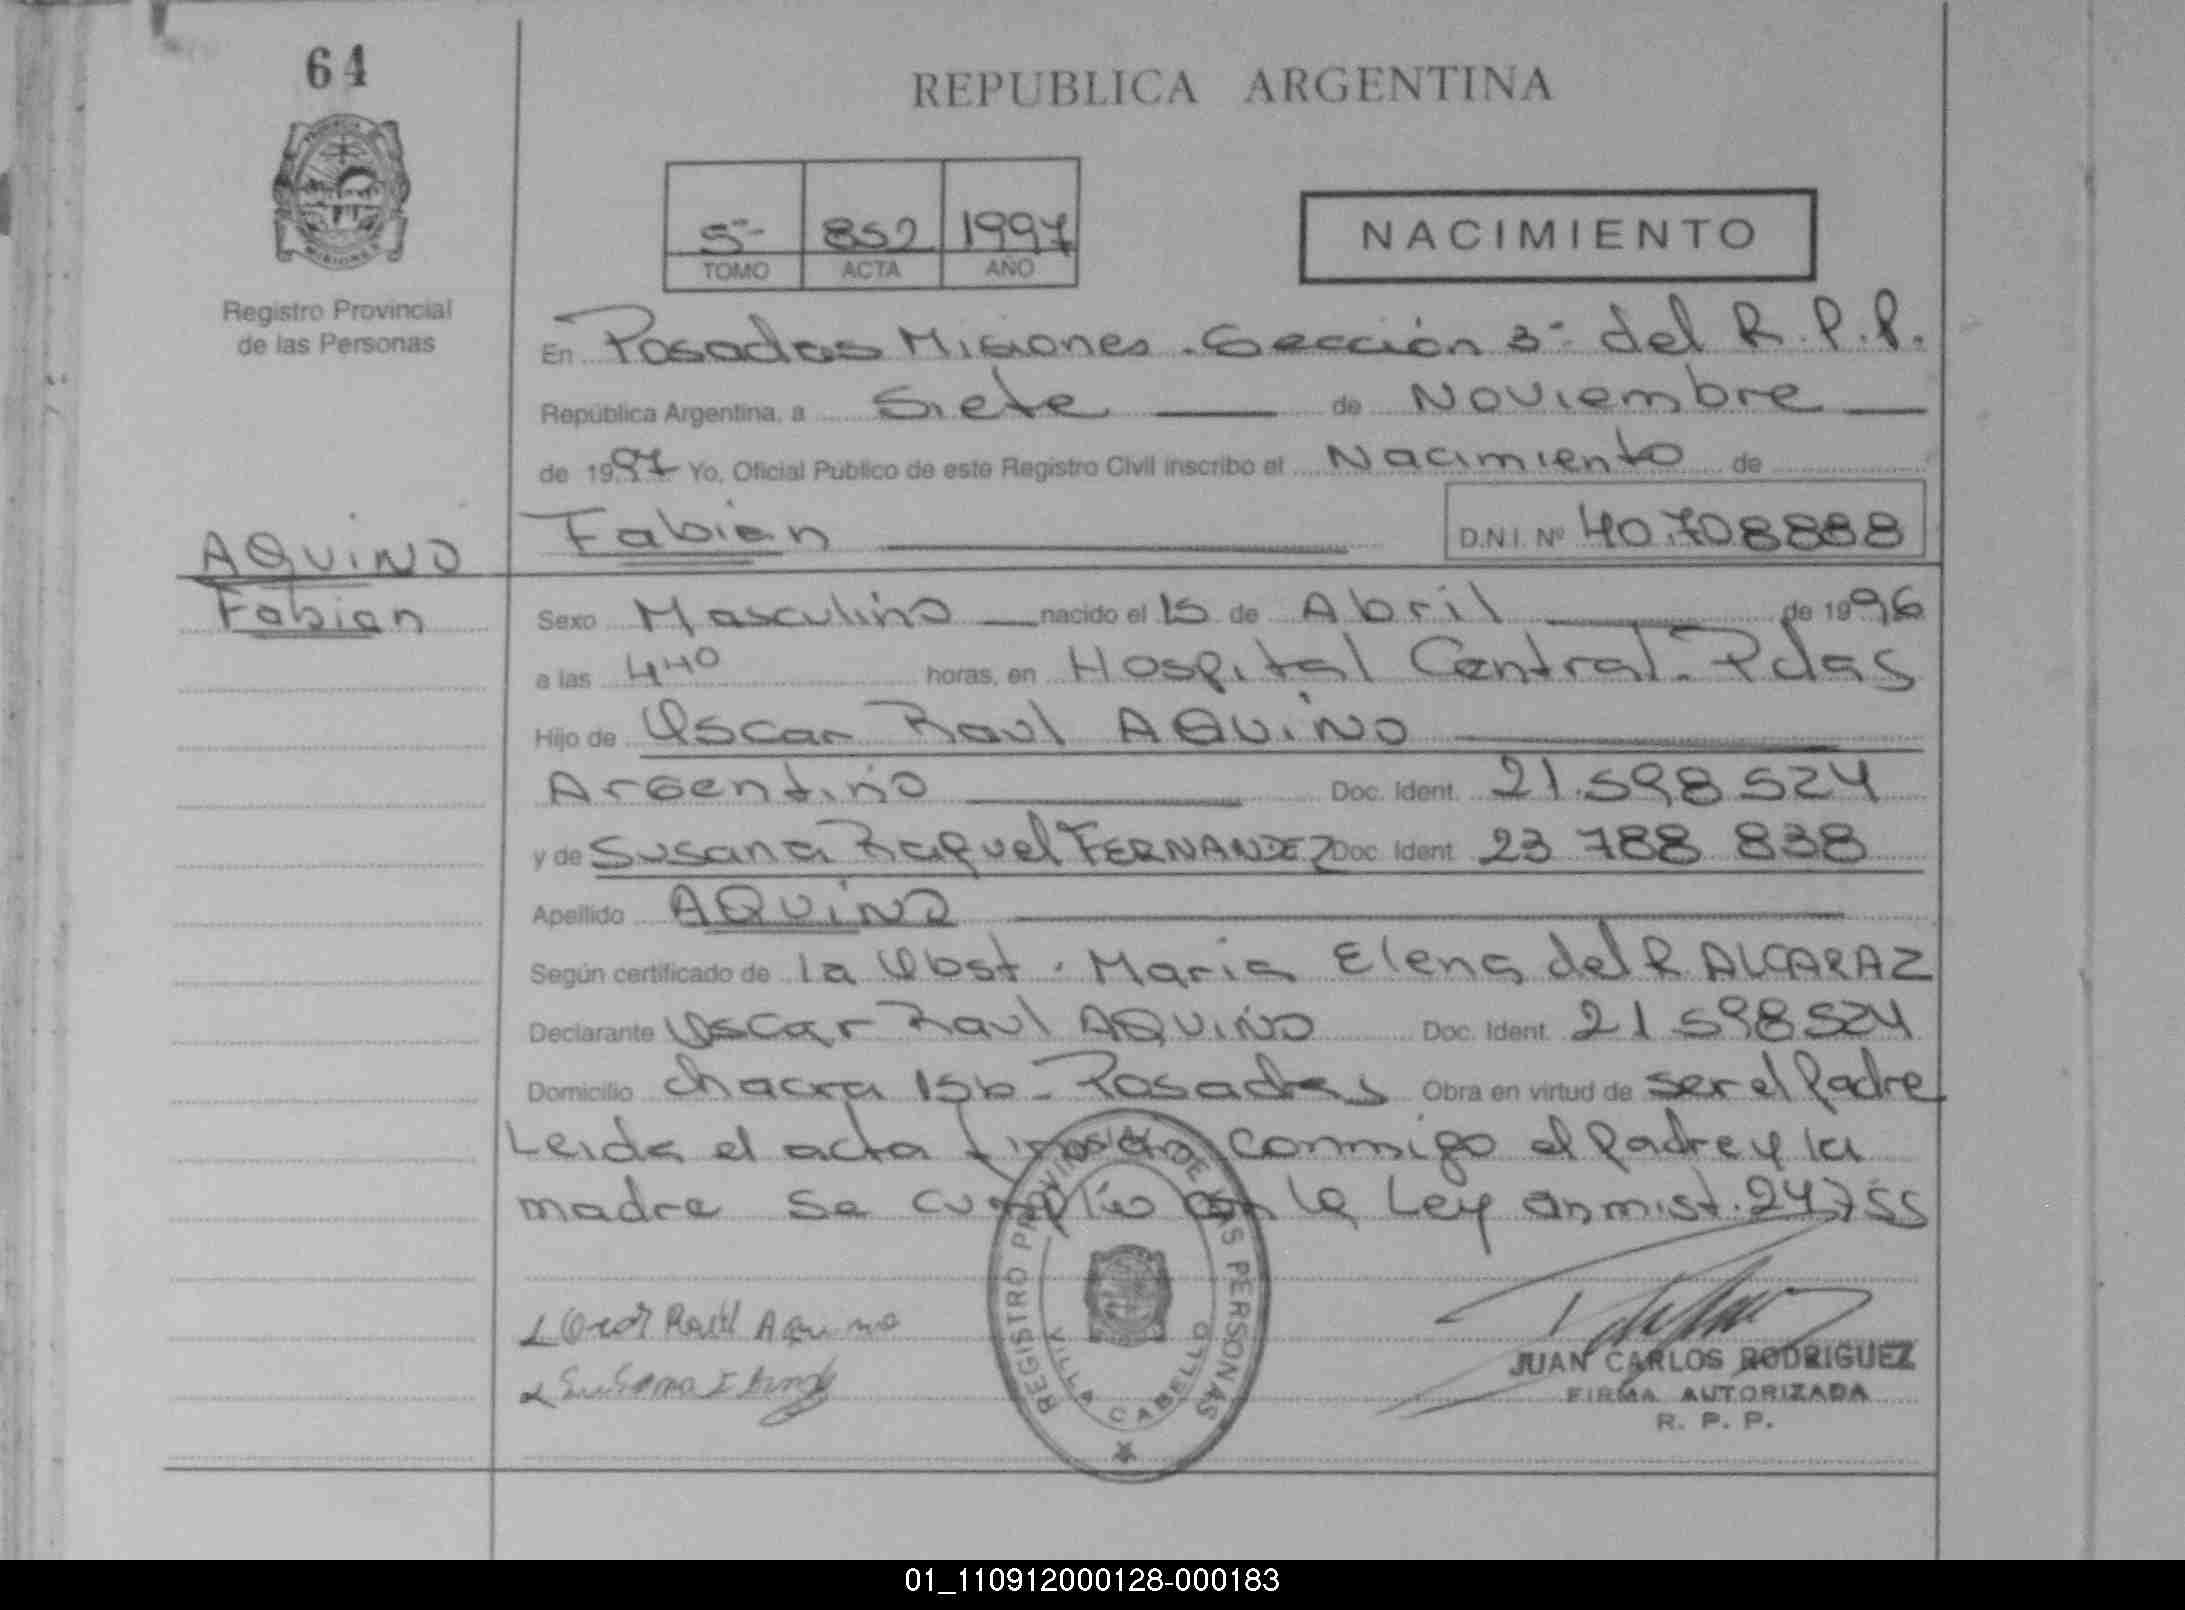 64
REPUBLICA ARGENTINA
5º 852 1997
TOMO ACTA AÑO
NACIMIENTO
Registro Provincial
de las Personas
En Posadas Misiones. Sección 3º del R.P.P.
República Argentina, a Siete de Noviembre
de 1997 Yo, Oficial Público de este Registro Civil inscribo el Nacimiento de
AQUINO
Fabian
Fabián D.N.I. Nº 40.708888
Sexo Masculino nacido el 15 de Abril de 1996
a las 440 horas, en Hospital Central. Pdas
Hijo de Oscar Raul AQUINO
Argentino Doc. Ident. 21.598524
y de Susana Raquel FERNANDEZ Doc. Ident 23 788 838
Apellido AQUINO
Según certificado de la Obst. Maria Elena del R. ALCARAZ
Declarante Oscar Raul AQUINO Doc. Ident. 21 598524
Domicilio chacra 156 - Posadas Obra en virtud de ser el Padre
Leida el acta firman conmigo el Padre y la
madre se cumplio con la Ley anmist. 24755
REGISTRO PROVINCIAL DE LAS PERSONAS
VILLA CABELLO
Raúl Aquino
Susana
JUAN CARLOS RODRIGUEZ
FIRMA AUTORIZADA
R. P. P.
01_110912000128-000183